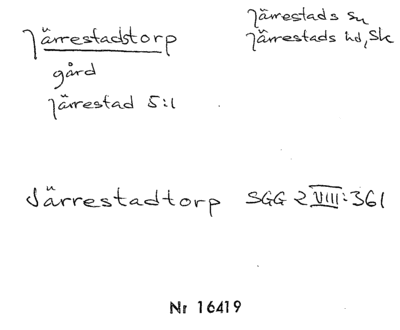 Järrestadstorp
gård
Järrestad 5:1
Järrestads sn
Järrestads hd, Sk
Järrestadtorp SGG 2 VIII:361
Nr 16419